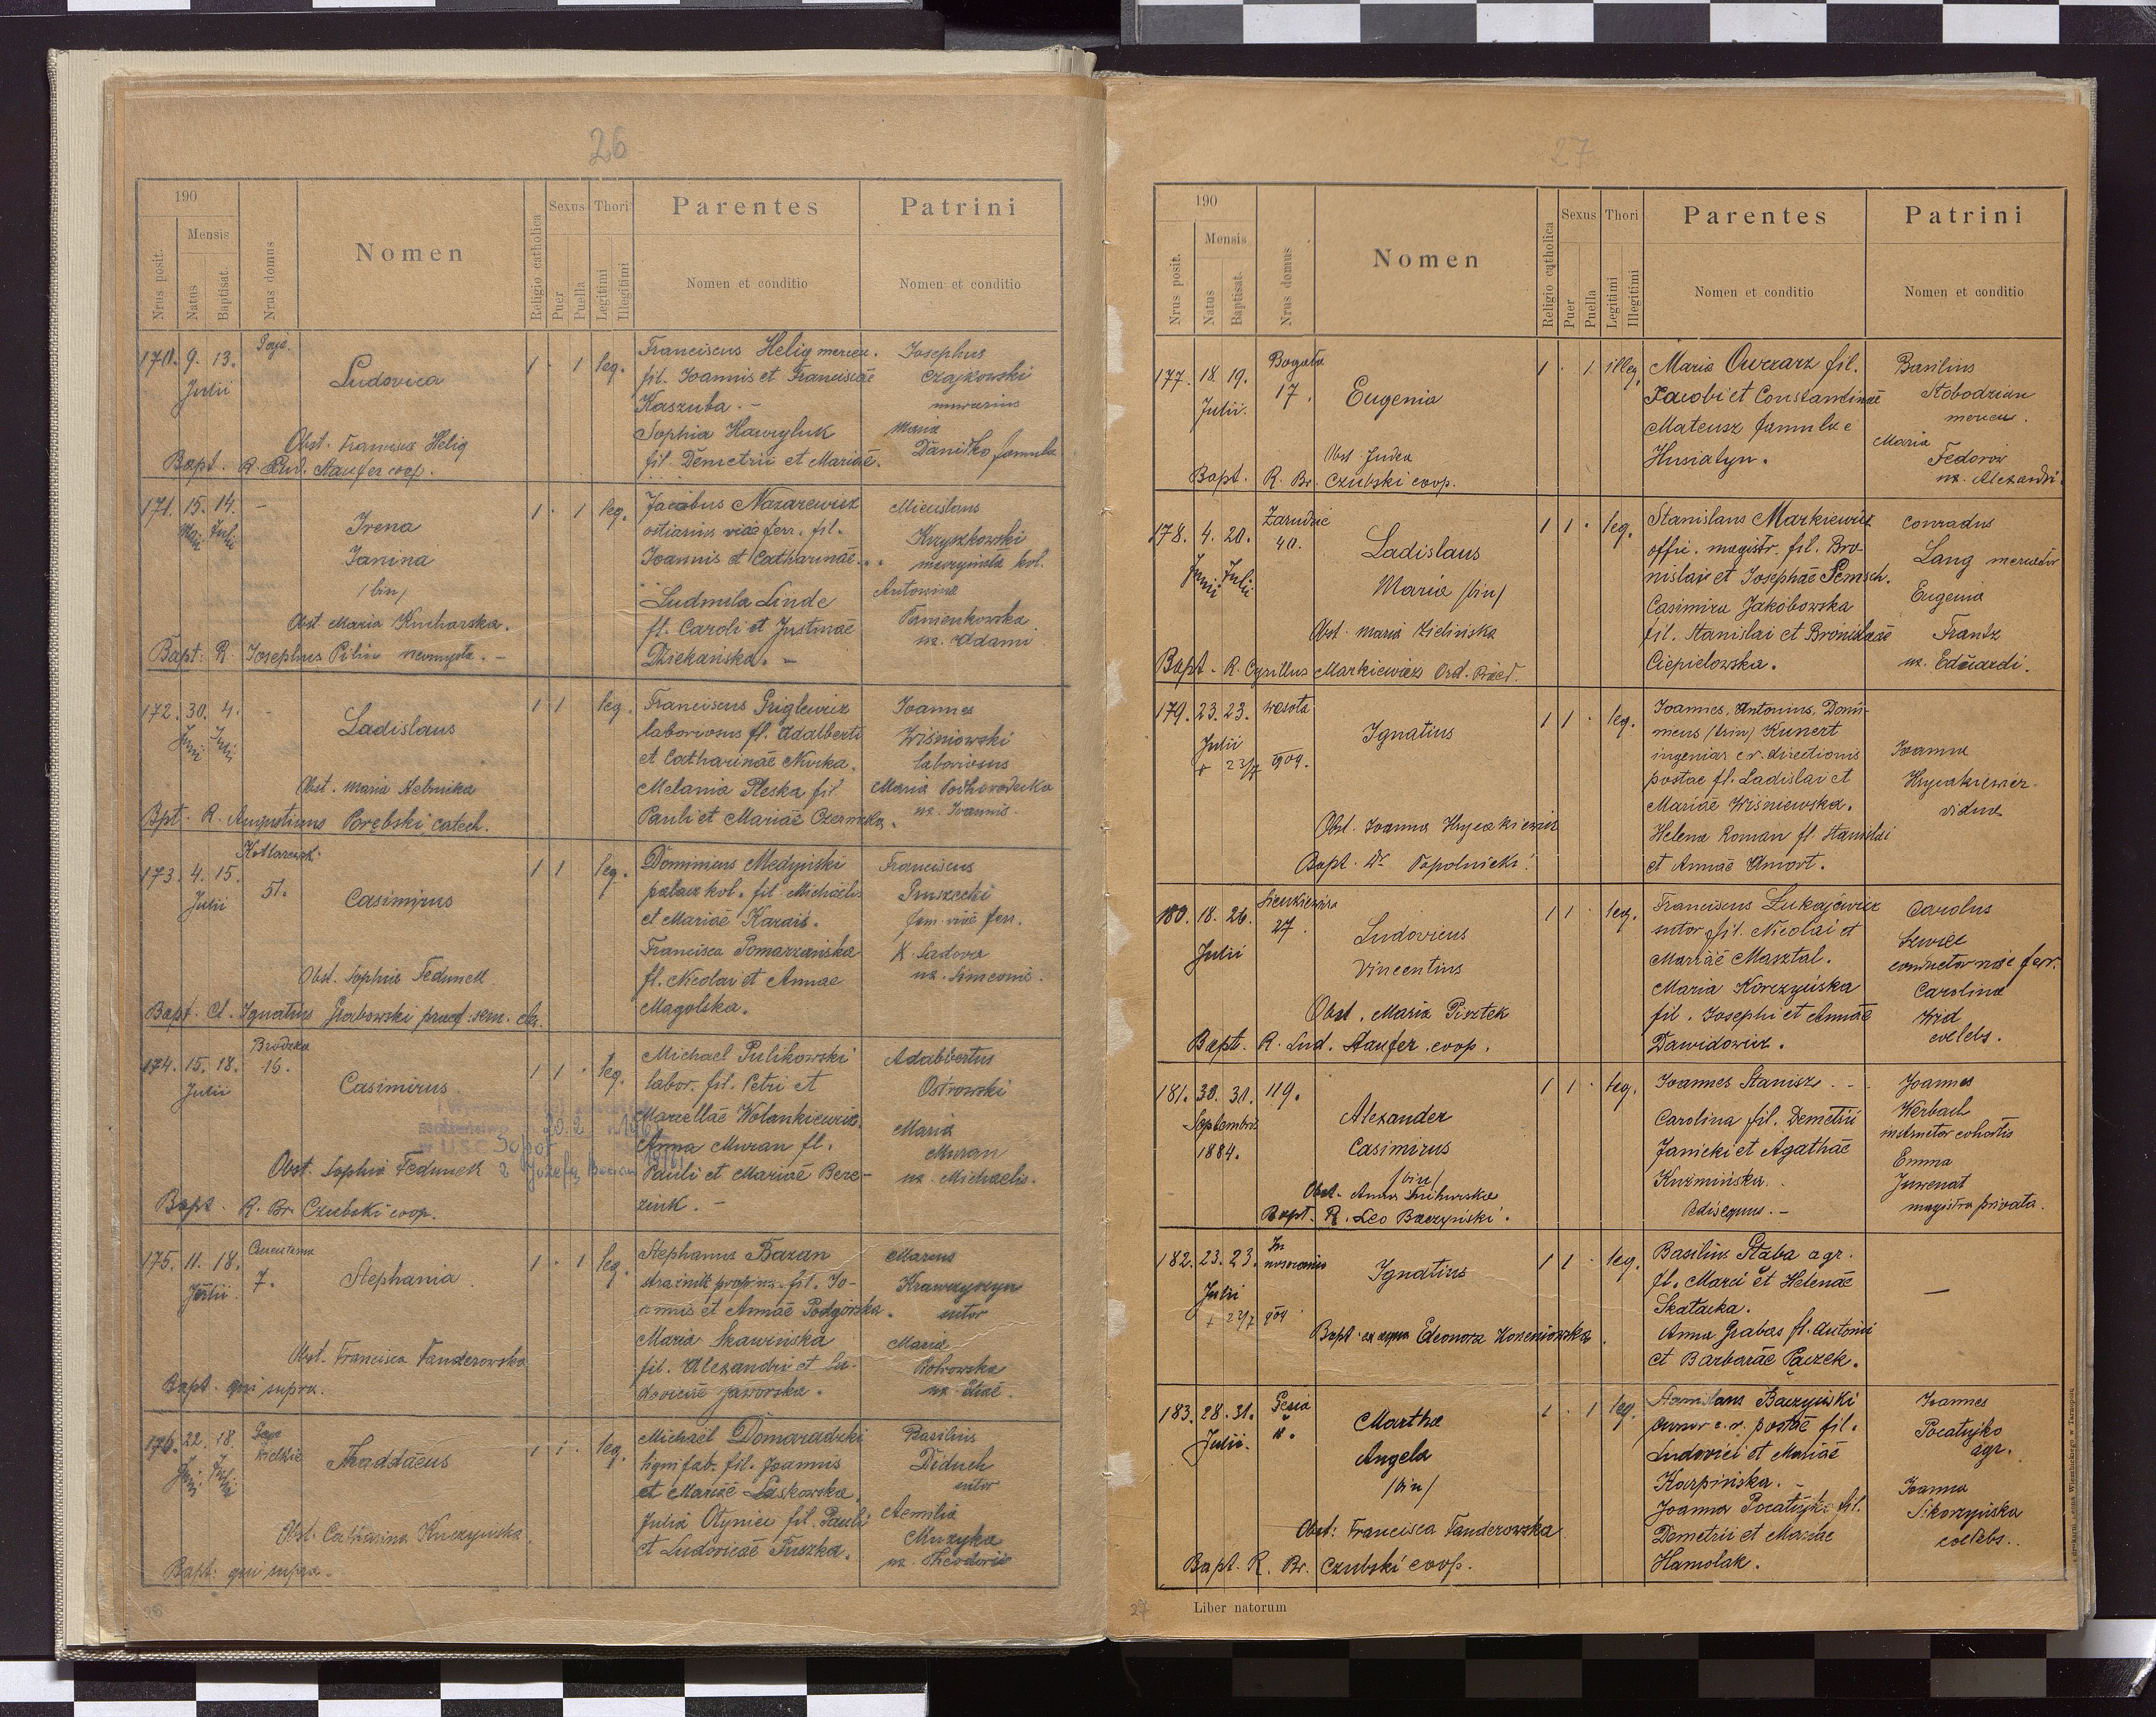 26
190
Nrus posit.
Mensis
Natus
Baptisat.
Nrus domus
Nomen
Religio catholica
Sexus
Puer
Puella
Thori
Legitimi
Illegitimi
Parentes
Nomen et conditio
Patrini
Nomen et conditio
170. 9. 13.
Julii
Ludovica
Obst. Francisca Helig
Bapt. R. Lud. Staufer coop.
1 · 1 leg.
Franciscus Helig mercen.
fil. Joannis et Franciscae
Kaszuba. -
Sophia Hawryluk
fil. Demetrii et Mariae.
Josephus
Czajkowski
murarius
Maria
Daniłko famula
171. 15. 14. -
Maji Julii
Irena
Janina
/bin/
Obst. Maria Kucharska.
Bapt: R. Josephus Pilin neomysta. -
1 · 1 leg.
Jacobus Nazarewicz
ostiarius viae ferr. fil.
Joannis et Catharinae
Ludmila Linde
fl. Caroli et Justinae
Dziekańska. -
Mieislaus
Kryszkowski
maszynista kol.
Antonina
Tamenkowska
ux. Adami
172. 30. 4. -
Junii Julii
Ladislaus
Obst. Maria Helnika
Bpt. R. Augustinus Porębski catech.
1 1 leg.
Franciscus Griglewicz
laboriosus fl. Adalberti
et Catharinae Nurka.
Melania Pleska fil.
Pauli et Mariae
Joannes
Wiśniowski
laboriosus
Maria Podhorodecka
ux. Joannis.
173. 4. 15.
Julii
51.
Casimirus
Obst. Sophia Fedunek
Bapt. Cl. Ignatius Grabowski praef. sem. cler.
1 1 leg.
Dominicus Medyński
palacz kol. fil. Michaelis
et Mariae Karaś.
Francisca Pomarzańska
fl. Nicolai et Annae
Magolska.
Franciscus
Pruszecki
fam. viae ferr.
K. Sadova
ux. Simeonis.
174. 15. 18.
Julii
Brodzka
16.
Casimirus
Obst. Sophia Fedunek
Bapt. R. Br. Czubski coop.
1 1 · leg.
Michael Pulikowski
labor. fil. Petri et
Marcellae Wolankiewicz.
Anna Muran fl.
Pauli et Mariae Bere-
ziuk. -
Adalbertus
Ostrowski
Maria
Muran
ux. Michaelis.
U.S.C. Sopot
175. 11. 18.
Julii
7.
Stephania
Obst. Francisca Tanderowska
Bapt. qui supra.
1 · 1 leg.
Stephanus Bazan
strażnik propin. fil. Jo-
annis et Annae Podgórska.
Maria Skawińska
fil. Alexandri et Lu-
dovicae Jaworska.
Marcus
Krawczyszyn
sutor
Maria
Piotrowska
ux. Eliae.
176. 22. 18.
Junii Julii
Thaddaeus
Obst. Catharina Kuczyńska
Bapt. qui supra.
1 1 · leg.
Michael Domaradzki
lignifab. fil. Joannis
et Mariae Laskowska.
Julia Olyniec fil. Pauli
et Ludovicae Tuszka.
Basilius
Diduch
sutor
Aemilia
Muzyka
ux. Theodorii
26
27
190
Nrus posit.
Mensis
Natus
Baptisat.
Nrus domus
Nomen
Religio catholica
Sexus
Puer
Puella
Thori
Legitimi
Illegitimi
Parentes
Nomen et conditio
Patrini
Nomen et conditio
177. 18. 19.
Julii.
Bogata
17.
Eugenia
Obst. Judea
Bapt. R. Br. Czubski coop.
1 · 1 illeg.
Maria Owczarz fil.
Jacobi et Constantinae
Mateusz famula e
Husiatyn.
Basilius
Słobodzian
mercen.
Maria
Fedorow
ux. Alexandri.
178. 4. 20.
Junii Julii
Zarudzie
40.
Ladislaus
Maria /bin/
Obst. Maria Zielińska
Bapt. R. Cyrillus Markiewicz Ord. Praed.
1 1 · leg.
Stanislaus Markiewicz
offic. magistr. fil. Bro-
nislai et Josephae Semsch.
Casimira Jakobowska
fil. Stanislai et Bronislaae
Ciepielowska.
Conradus
Lang mercator
Eugenia
Frantz
ux. Eduardi.
179. 23. 23.
Julii
+ 23/7 909.
wesoła
Ignatius
Obst. Joanna Hrycakiewicz
Bapt. Dr. Topolnicki.
1 1 · leg.
Joannes, Antonius, Domi-
nicus (trin) Kunert
ingeniar c.r. directionis
postae fl. Ladislai et
Mariae Wiśniewska.
Helena Roman fl. Stanislai
et Annae Amort.
Joanna
Hrycakiewicz
vidua
180. 18. 26.
Julii
Sienkiewicza
27.
Ludovicus
Vincentius
Obst. Maria Pisztek
Bapt. R. Lud. Staufer coop.
1 1 · leg.
Franciscus Lukasiewicz
sutor fil. Nicolai et
Mariae Masztal.
Maria Korczyńska
fil. Josephi et Annae
Dawidowicz.
Carolus
Szwiec
conductor viae ferr.
Carolina
Wid
coelebs.
181. 30. 31. 119.
Septembris
1884.
Alexander
Casimirus
/bin/
Obst. Anna Suchorska
Bapt. R. Leo Baczyński.
1 1 · leg.
Joannes Stanisz - -
Carolina fil. Demetrii
Janicki et Agathae
Kuzmińska.
Pedisequus. -
Joannes
Werbach
instructor cohortis
Emma
Juwenat
magistra privata.
182. 23. 23.
Julii
+ 24/7 909
In
nosocomio
Ignatius
Bapt. ex aqua Eleonora Korzeniowska.
1 1 · leg.
Basilius Staba agr.
fl. Marci et Helenae
Skatacka.
Anna Grabas fl. Antonii
et Barbarae Paczek.
—
183. 28. 31.
Julii.
Gęsia
11.
Martha
Angela
/bin/
Obst: Francisca Tanderowska
Bapt. R. Br. Czubski coop.
1 · 1 leg.
Stanislaus Baczyński
c.r. postae fil.
Ludovici et Mariae
Karpińska. -
Joanna Pocatujko fil.
Demetrii et Mariae
Hamolak.
Joannes
Pocatujko
agr.
Joanna
Sikorzyńska
coelebs.
27
Liber natorum